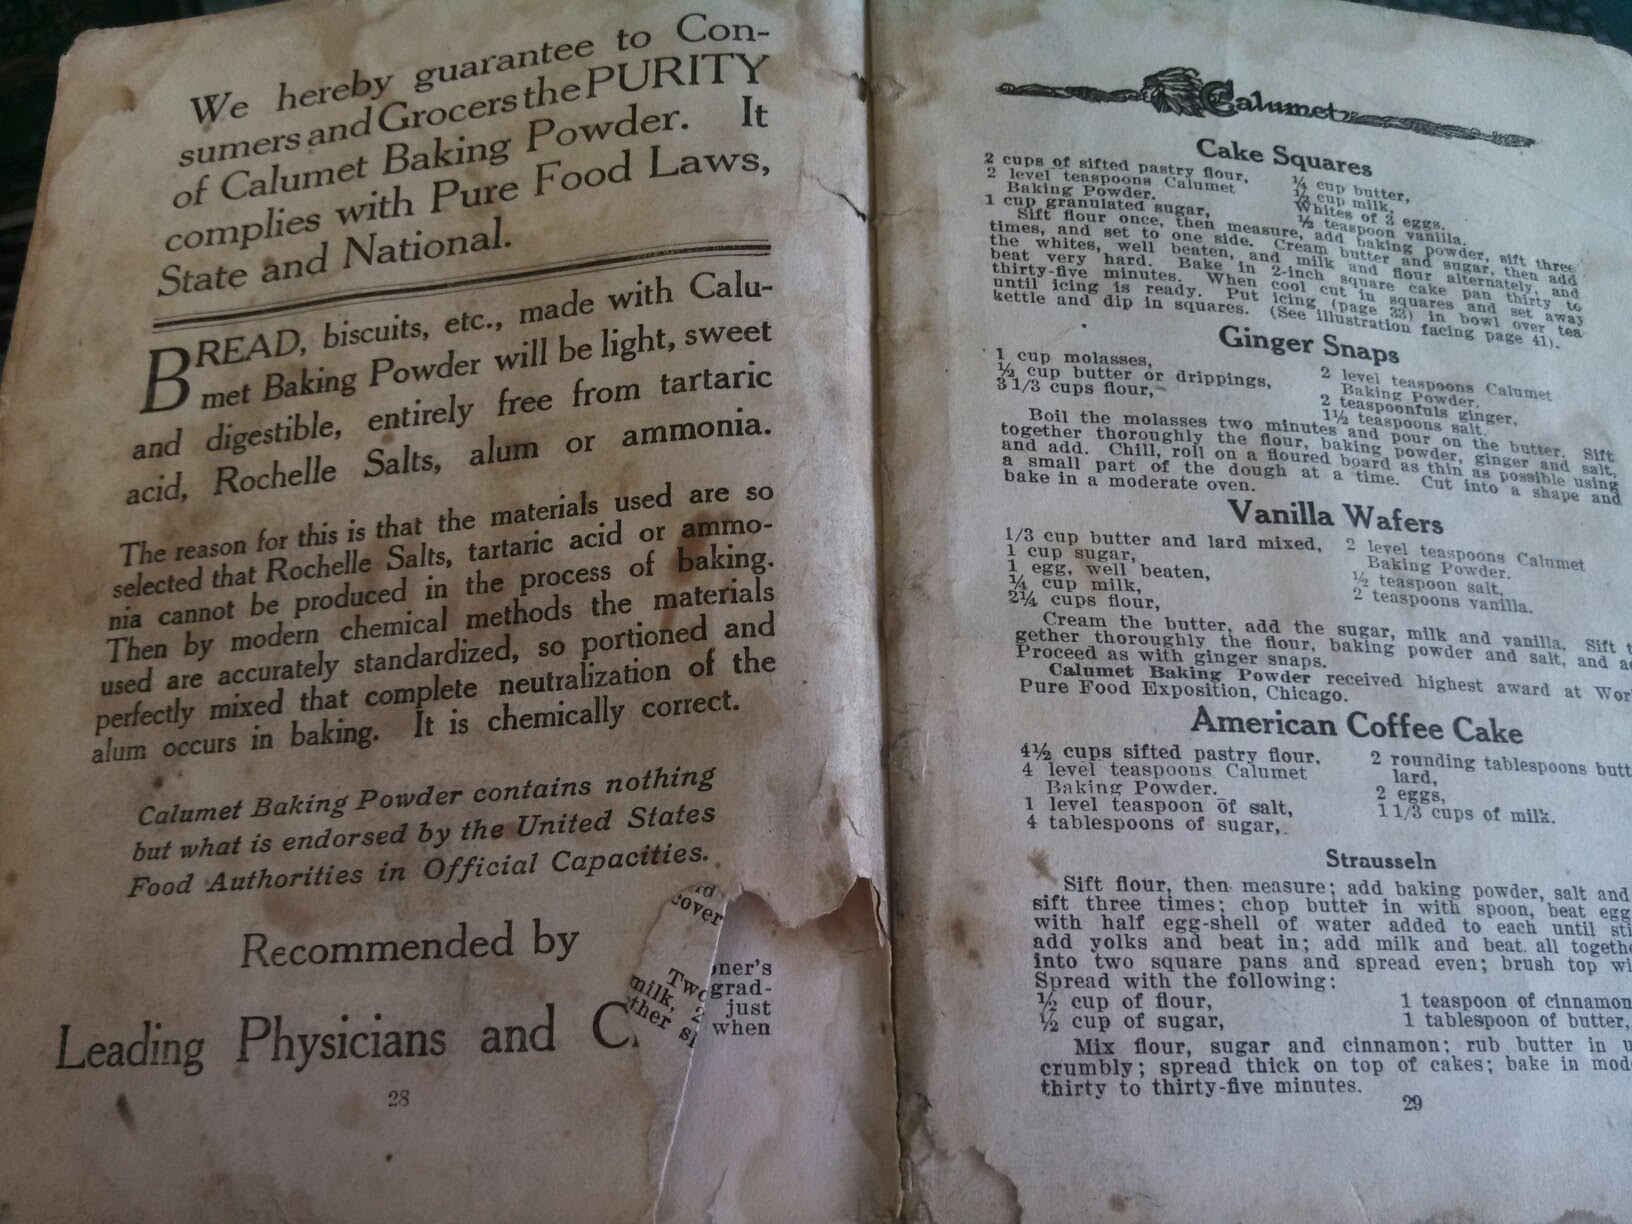 We hereby guarantee to Con-
sumers and Grocers the PURITY
of Calumet Baking Powder. It
complies with Pure Food Laws,
State and National.
BREAD, biscuits, etc., made with Calu-
met Baking Powder will be light, sweet
and digestible, entirely free from tartaric
acid, Rochelle Salts, alum or ammonia.
The reason for this is that the materials used are so
selected that Rochelle Salts, tartaric acid or ammo-
nia cannot be produced in the process of baking.
Then by modern chemical methods the materials
used are accurately standardized, so portioned and
perfectly mixed that complete neutralization of the
alum occurs in baking. It is chemically correct.
Calumet Baking Powder contains nothing
but what is endorsed by the United States
Food Authorities in Official Capacities.
Recommended by
Leading Physicians and
28
cover
Two
milk, 2
ther
oner's
grad-
just
when
Calumet
Cake Squares
2 cups of sifted pastry flour,
2 level teaspoons Calumet
Baking Powder.
1 cup granulated sugar,
¼ cup butter,
½ cup milk,
Whites of 3 eggs.
½ teaspoon vanilla.
Sift flour once, then measure, add baking powder, sift three
times, and set to one side. Cream butter and sugar, then add
the whites, well beaten, and milk and flour alternately, and
beat very hard. Bake in 2-inch square cake pan thirty to
thirty-five minutes. When cool cut in squares and set away
until icing is ready. Put icing (page 33) in bowl over tea
kettle and dip in squares. (See illustration facing page 41).
Ginger Snaps
1 cup molasses,
½ cup butter or drippings,
3 1/3 cups flour,
2 level teaspoons Calumet
Baking Powder.
2 teaspoonfuls ginger,
1½ teaspoons salt.
Boil the molasses two minutes and pour on the butter. Sift
together thoroughly the flour, baking powder, ginger and salt,
and add. Chill, roll on a floured board as thin as possible using
a small part of the dough at a time. Cut into a shape and
bake in a moderate oven.
Vanilla Wafers
1/3 cup butter and lard mixed,
1 cup sugar,
1 egg, well beaten,
¼ cup milk,
2¼ cups flour,
2 level teaspoons Calumet
Baking Powder.
½ teaspoon salt,
2 teaspoons vanilla.
Cream the butter, add the sugar, milk and vanilla. Sift t
gether thoroughly the flour, baking powder and salt, and a
Proceed as with ginger snaps.
Calumet Baking Powder received highest award at Wor
Pure Food Exposition, Chicago.
American Coffee Cake
4½ cups sifted pastry flour.
4 level teaspoons Calumet
Baking Powder.
1 level teaspoon of salt,
4 tablespoons of sugar,
2 rounding tablespoons butt
lard,
2 eggs,
1 1/3 cups of milk.
Strausseln
Sift flour, then measure; add baking powder, salt and
sift three times; chop butter in with spoon, beat egg
with half egg-shell of water added to each until sti
add yolks and beat in; add milk and beat all togethe
into two square pans and spread even; brush top wi
Spread with the following:
½ cup of flour,
½ cup of sugar,
1 teaspoon of cinnamon
1 tablespoon of butter,
Mix flour, sugar and cinnamon; rub butter in u
crumbly; spread thick on top of cakes; bake in mod
thirty to thirty-five minutes.
29